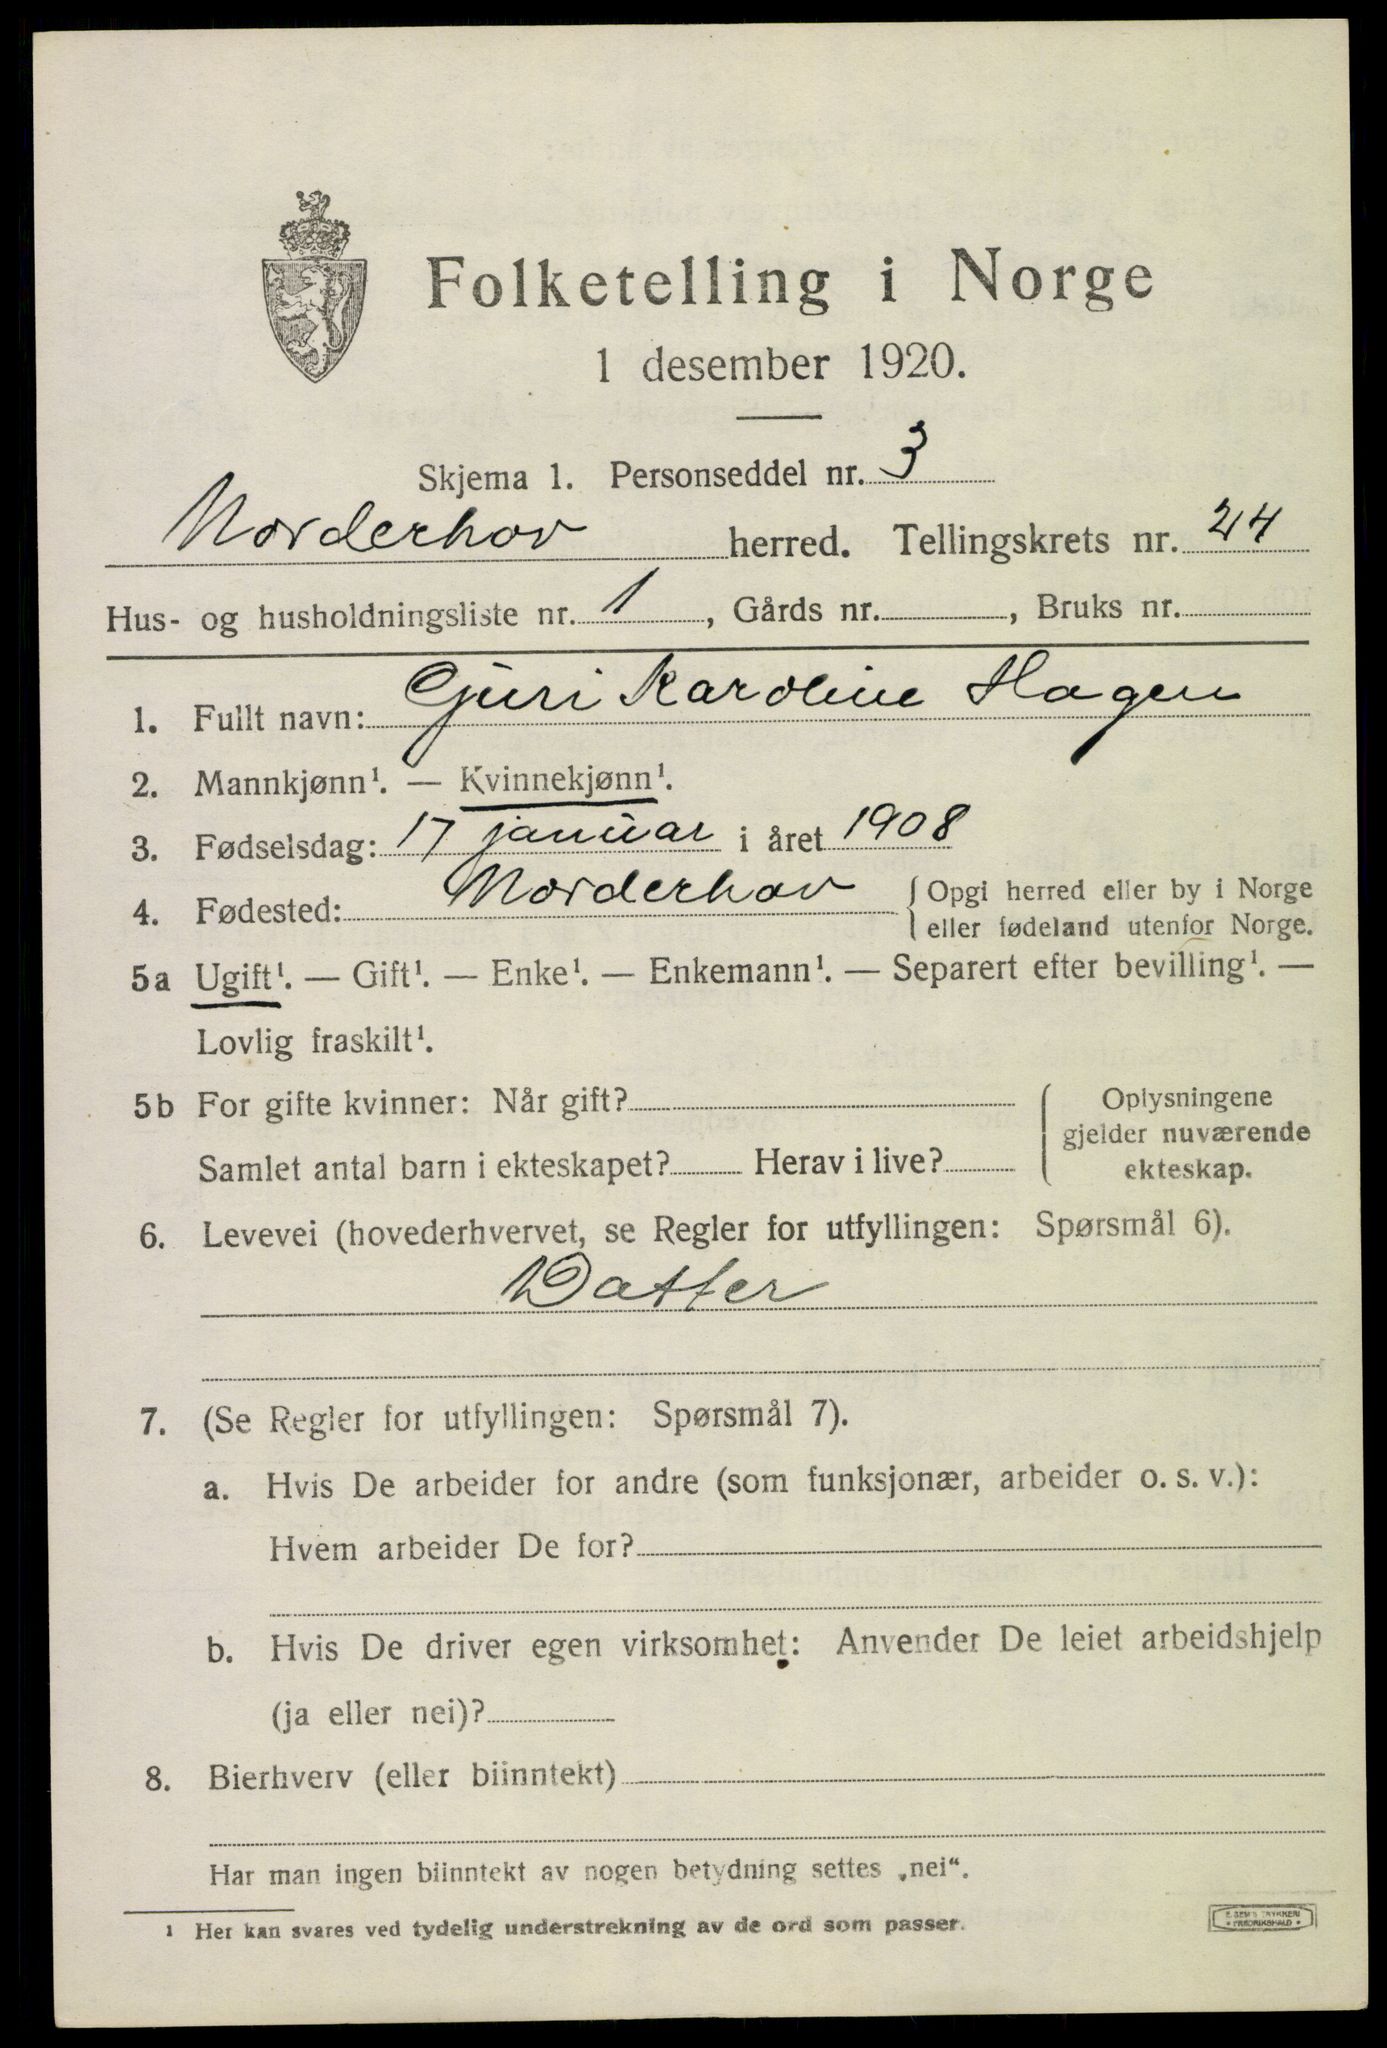 Folketelling i Norge
1 desember 1920.
Skjema 1. Personseddel nr. 3
Norderhov herred. Tellingskrets nr. 24
Hus- og husholdningsliste nr. 1, Gårds nr. , Bruks nr.
1. Fullt navn: Guri Karoline Hagen
2. Mannkjønn¹. — Kvinnekjønn¹.
3. Fødselsdag: 17 januar i året 1908
4. Fødested: Norderhov { Opgi herred eller by i Norge
eller fødeland utenfor Norge.
5a Ugift¹. — Gift¹. — Enke¹. — Enkemann¹. — Separert efter bevilling¹. —
Lovlig fraskilt¹.
5b For gifte kvinner: Når gift? Oplysningene
gjelder nuværende
Samlet antal barn i ekteskapet? Herav i live? ekteskap.
6. Levevei (hovederhvervet, se Regler for utfyllingen: Spørsmål 6).
Datter
7. (Se Regler for utfyllingen: Spørsmål 7).
a. Hvis De arbeider for andre (som funksjonær, arbeider o. s. v.):
Hvem arbeider De for?
b. Hvis De driver egen virksomhet: Anvender De leiet arbeidshjelp
(ja eller nei)?
8. Bierhverv (eller biinntekt)
Har man ingen biinntekt av nogen betydning settes „nei“.
¹ Her kan svares ved tydelig understrekning av de ord som passer.
E. SEM'S TRYKKERI
FREDRIKSHALD